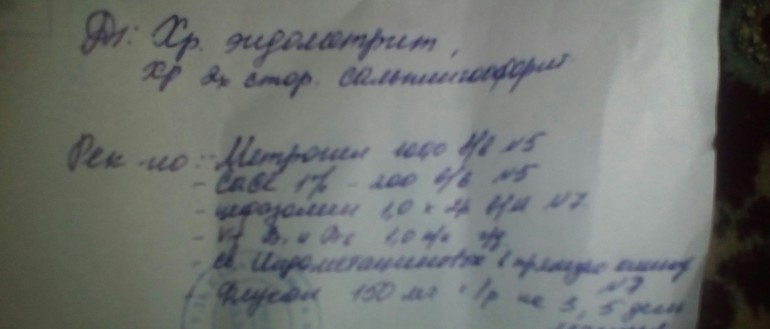 Ds: Хр. эндометрит,
Хр 2х стор. сальпингоофорит.
Рек-но: - Метрогил в/в №5
- CaCl 1% - 200 в/в №5
- цефазолин 1,0 х 2р в/м №7
- vit B1 и B6 1,0 в/м ч/д
- св. Индометациновые в прямую кишку
№7
- Флукан 150 мг 1р на 3, 5 день